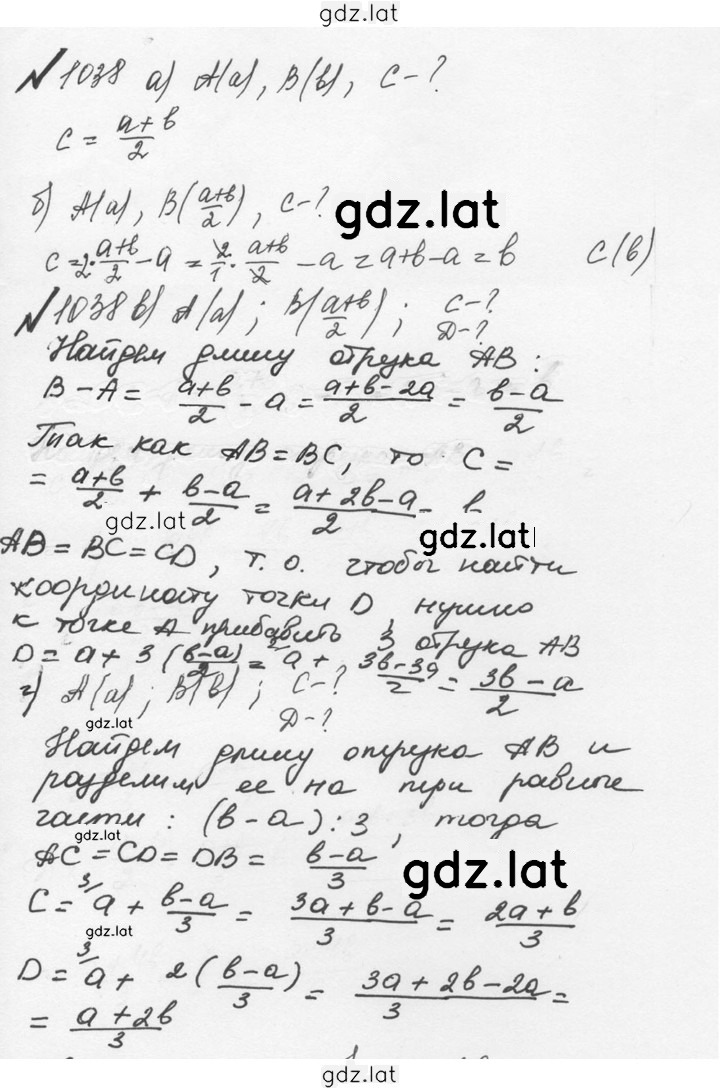 gdz.lat
№1038 а) A(a), B(b), C-?
C = (a+b)/2
б) A(a), B((a+b)/2), C-?
gdz.lat
C = 2·(a+b)/2 - a = 2/1·(a+b)/2 - a = a+b-a = b C(b)
№1038 в) A(a); B((a+b)/2); C-?
D-?
Найдем длину отрезка AB:
B-A = (a+b)/2 - a = (a+b-2a)/2 = (b-a)/2
Так как AB=BC, то C =
= (a+b)/2 + (b-a)/2 = (a+2b-a)/2 = b
gdz.lat
gdz.lat
AB = BC = CD, т.о. чтобы найти
координату точки D, нужно
к точке A прибавить 3 отрезка AB
D = a + 3(b-a)/2 = a + (3b-3a)/2 = (3b-a)/2
г) A(a); B(b); C-?
gdz.lat
D-?
Найдем длину отрезка AB и
разделим ее на три равные
части: (b-a):3, тогда
AC = CD = DB = (b-a)/3
gdz.lat
gdz.lat
C = a + (b-a)/3 = (3a+b-a)/3 = (2a+b)/3
gdz.lat
D = a + 2(b-a)/3 = (3a+2b-2a)/3 =
= (a+2b)/3
gdz.lat